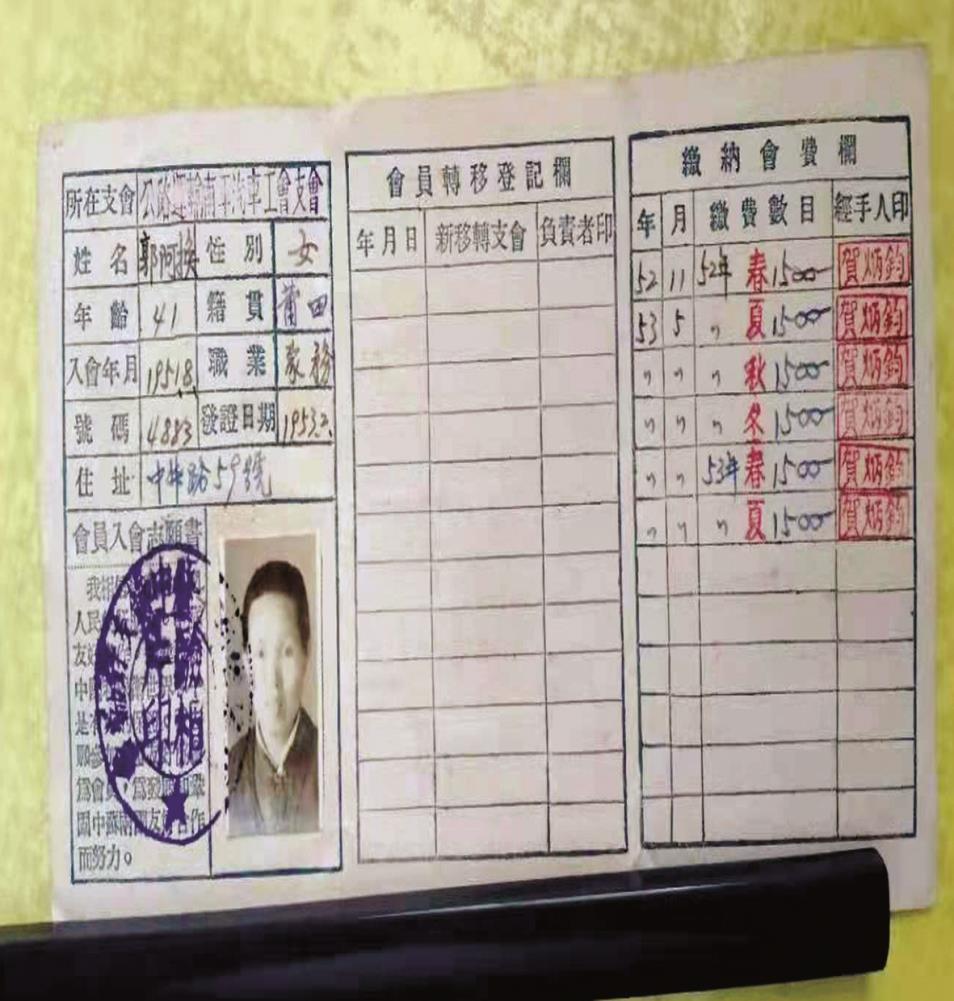 所在支會 公路運輸南平汽車工會支會
姓名 郭阿換 性別 女
年齡 41 籍貫 莆田
入會年月 1951.8. 職業 家務
號碼 4883 發證日期 1953.2.
住址 中华路59號
會員入會志願書
我相
人民
友好
中
是
願參
為會員，為發展和鞏
固中蘇兩國友好合作
而努力。
相
印
會員轉移登記欄
年月日 新移轉支會 負責者印
繳納會費欄
年 月 繳費數目 經手人印
52 11 52年 春 1500 賀炳鈞
53 5 〃 夏 1500 賀炳鈞
〃 〃 〃 秋 1500 賀炳鈞
〃 〃 〃 冬 1500 賀炳鈞
〃 〃 53年 春 1500 賀炳鈞
〃 〃 〃 夏 1500 賀炳鈞